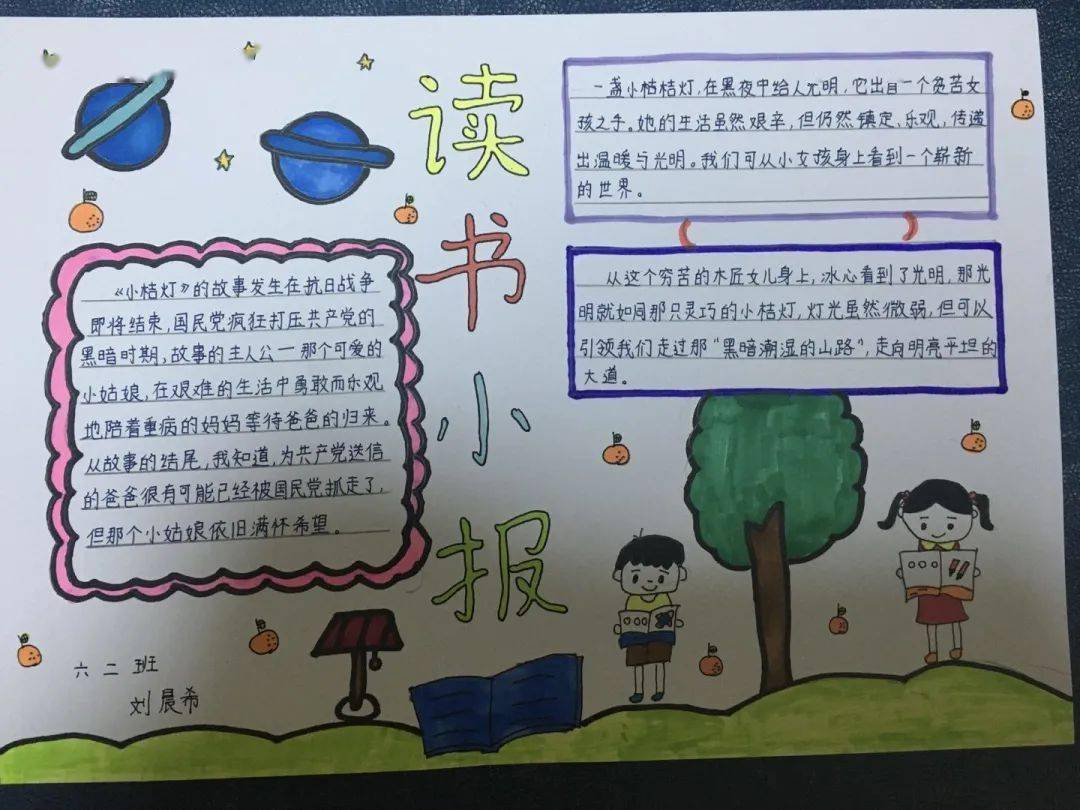 读书小报
一盏小桔桔灯,在黑夜中给人光明,它出自一个贫苦女
孩之手。她的生活虽然艰辛,但仍然镇定、乐观,传递
出温暖与光明。我们可从小女孩身上看到一个崭新
的世界。
从这个穷苦的木匠女儿身上,冰心看到了光明,那光
明就如同那只灵巧的小桔灯,灯光虽然微弱,但可以
引领我们走过那“黑暗潮湿的山路”,走向明亮平坦的
大道。
《小桔灯》的故事发生在抗日战争
即将结束,国民党疯狂打压共产党的
黑暗时期,故事的主人公一那个可爱的
小姑娘,在艰难的生活中勇敢而乐观
地陪着重病的妈妈等待爸爸的归来。
从故事的结尾,我知道,为共产党送信
的爸爸很有可能已经被国民党抓走了,
但那个小姑娘依旧满怀希望。
六二班
刘晨希